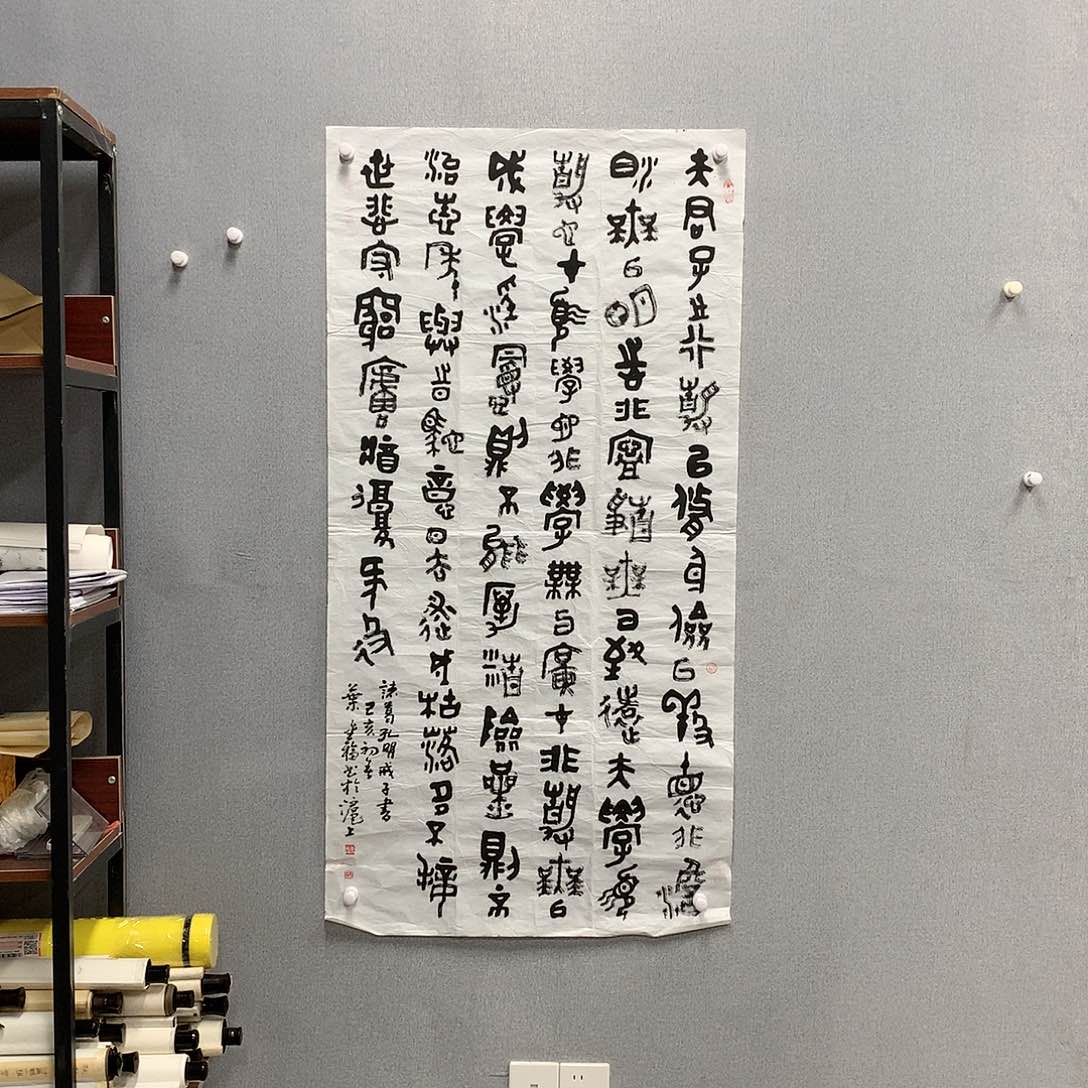 夫君子之行靜以修身儉以養德非澹
泊無以明志非寧靜無以致遠夫學須
靜也才須學也非學無以廣才非靜無以
成學淫慢則不能厲精險躁則不
冶性年與時馳意日去遂成枯落多不接
世悲守窮廬將復及
諸葛孔明戒子書
己亥初
葉福書於滬上